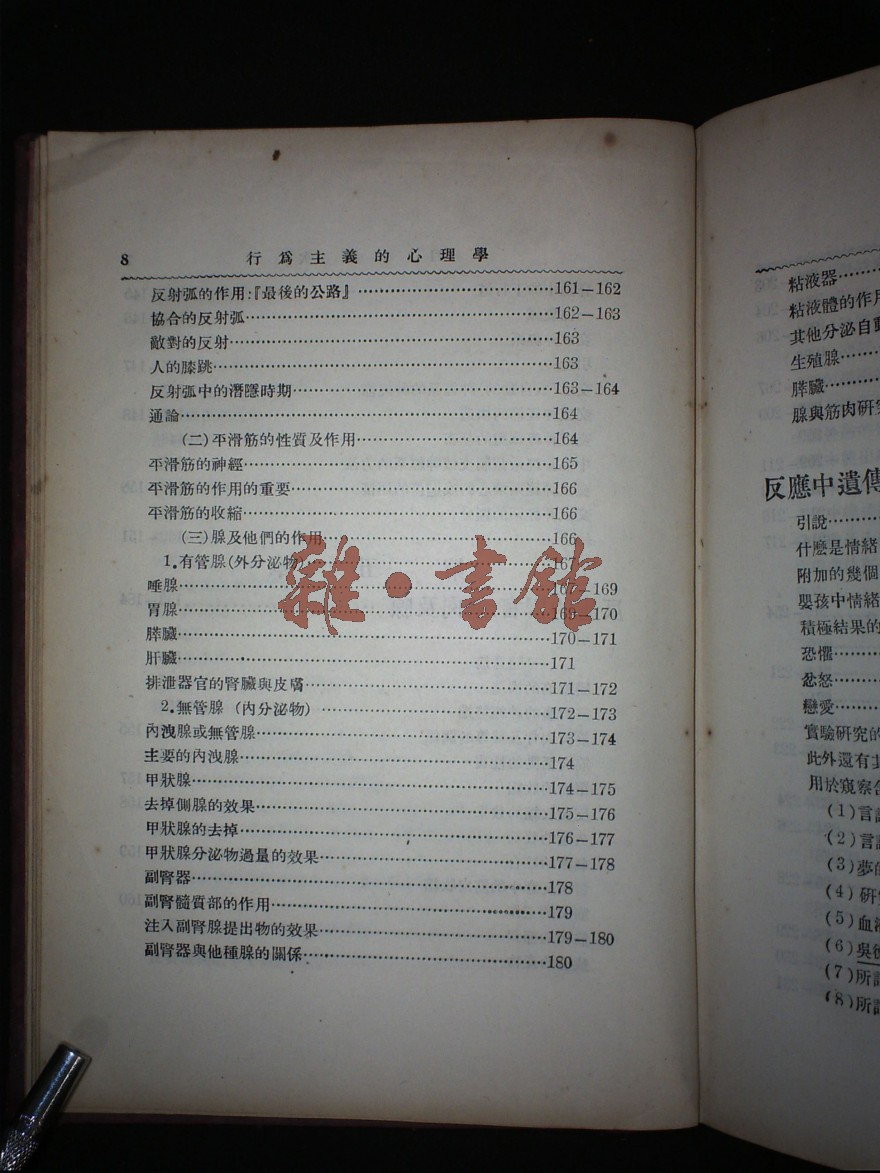 8 行爲主義的心理學
反射弧的作用:『最後的公路』…161—162
協合的反射弧…162—163
敵對的反射…163
人的膝跳…163
反射弧中的潛隱時期…163—164
通論…164
(二)平滑筋的性質及作用…164
平滑筋的神經…165
平滑筋的作用的重要…166
平滑筋的收縮…166
(三)腺及他們的作用…166
1.有管腺(外分泌物)…167
唾腺…167—169
胃腺…169—170
膵臟…170—171
肝臟…171
排泄器官的腎臟與皮膚…171—172
2.無管腺(內分泌物)…172—173
內洩腺或無管腺…173—174
主要的內洩腺…174
甲狀腺…174—175
去掉側腺的效果…175—176
甲狀腺的去掉…176—177
甲狀腺分泌物過量的效果…177—178
副腎器…178
副腎髓質部的作用…179
注入副腎腺提出物的效果…179—180
副腎器與他種腺的關係…180
雜·書館
粘液器…
粘液體的作用
其他分泌自動
生殖腺…
膵臟…
腺與筋肉研究
反應中遺傳
引說…
什麼是情緒
附加的幾個
嬰孩中情緒
積極結果的
恐懼…
忿怒…
戀愛…
實驗研究的
此外還有其
用於窺察含
(1)言語
(2)言
(3)夢的
(4)研究
(5)血液
(6)吳
(7)所謂
(8)所謂